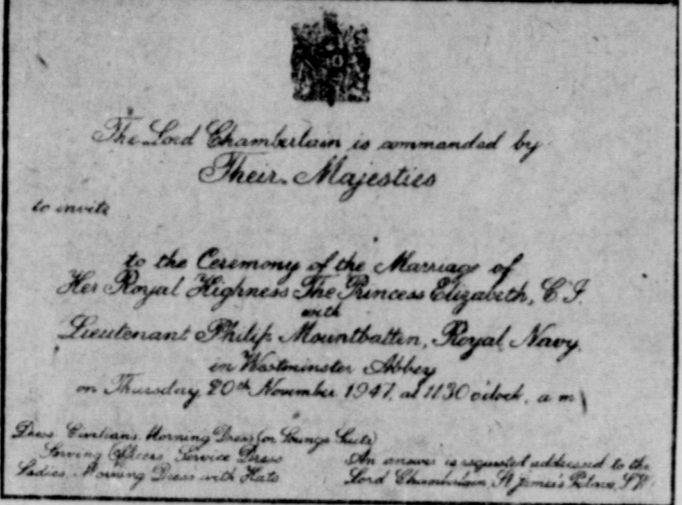 The Lord Chamberlain is commanded by
Their Majesties
to invite
to the Ceremony of the Marriage of
Her Royal Highness The Princess Elizabeth, C.I.
with
Lieutenant Philip Mountbatten, Royal Navy
in Westminster Abbey
on Thursday 20th November 1947, at 11.30 o'clock, a.m.
Dress: Civilians, Morning Dress (or Lounge Suits)
Serving Officers, Service Dress
Ladies, Morning Dress with Hats
An answer is requested addressed to the
Lord Chamberlain, St James's Palace, S.W.